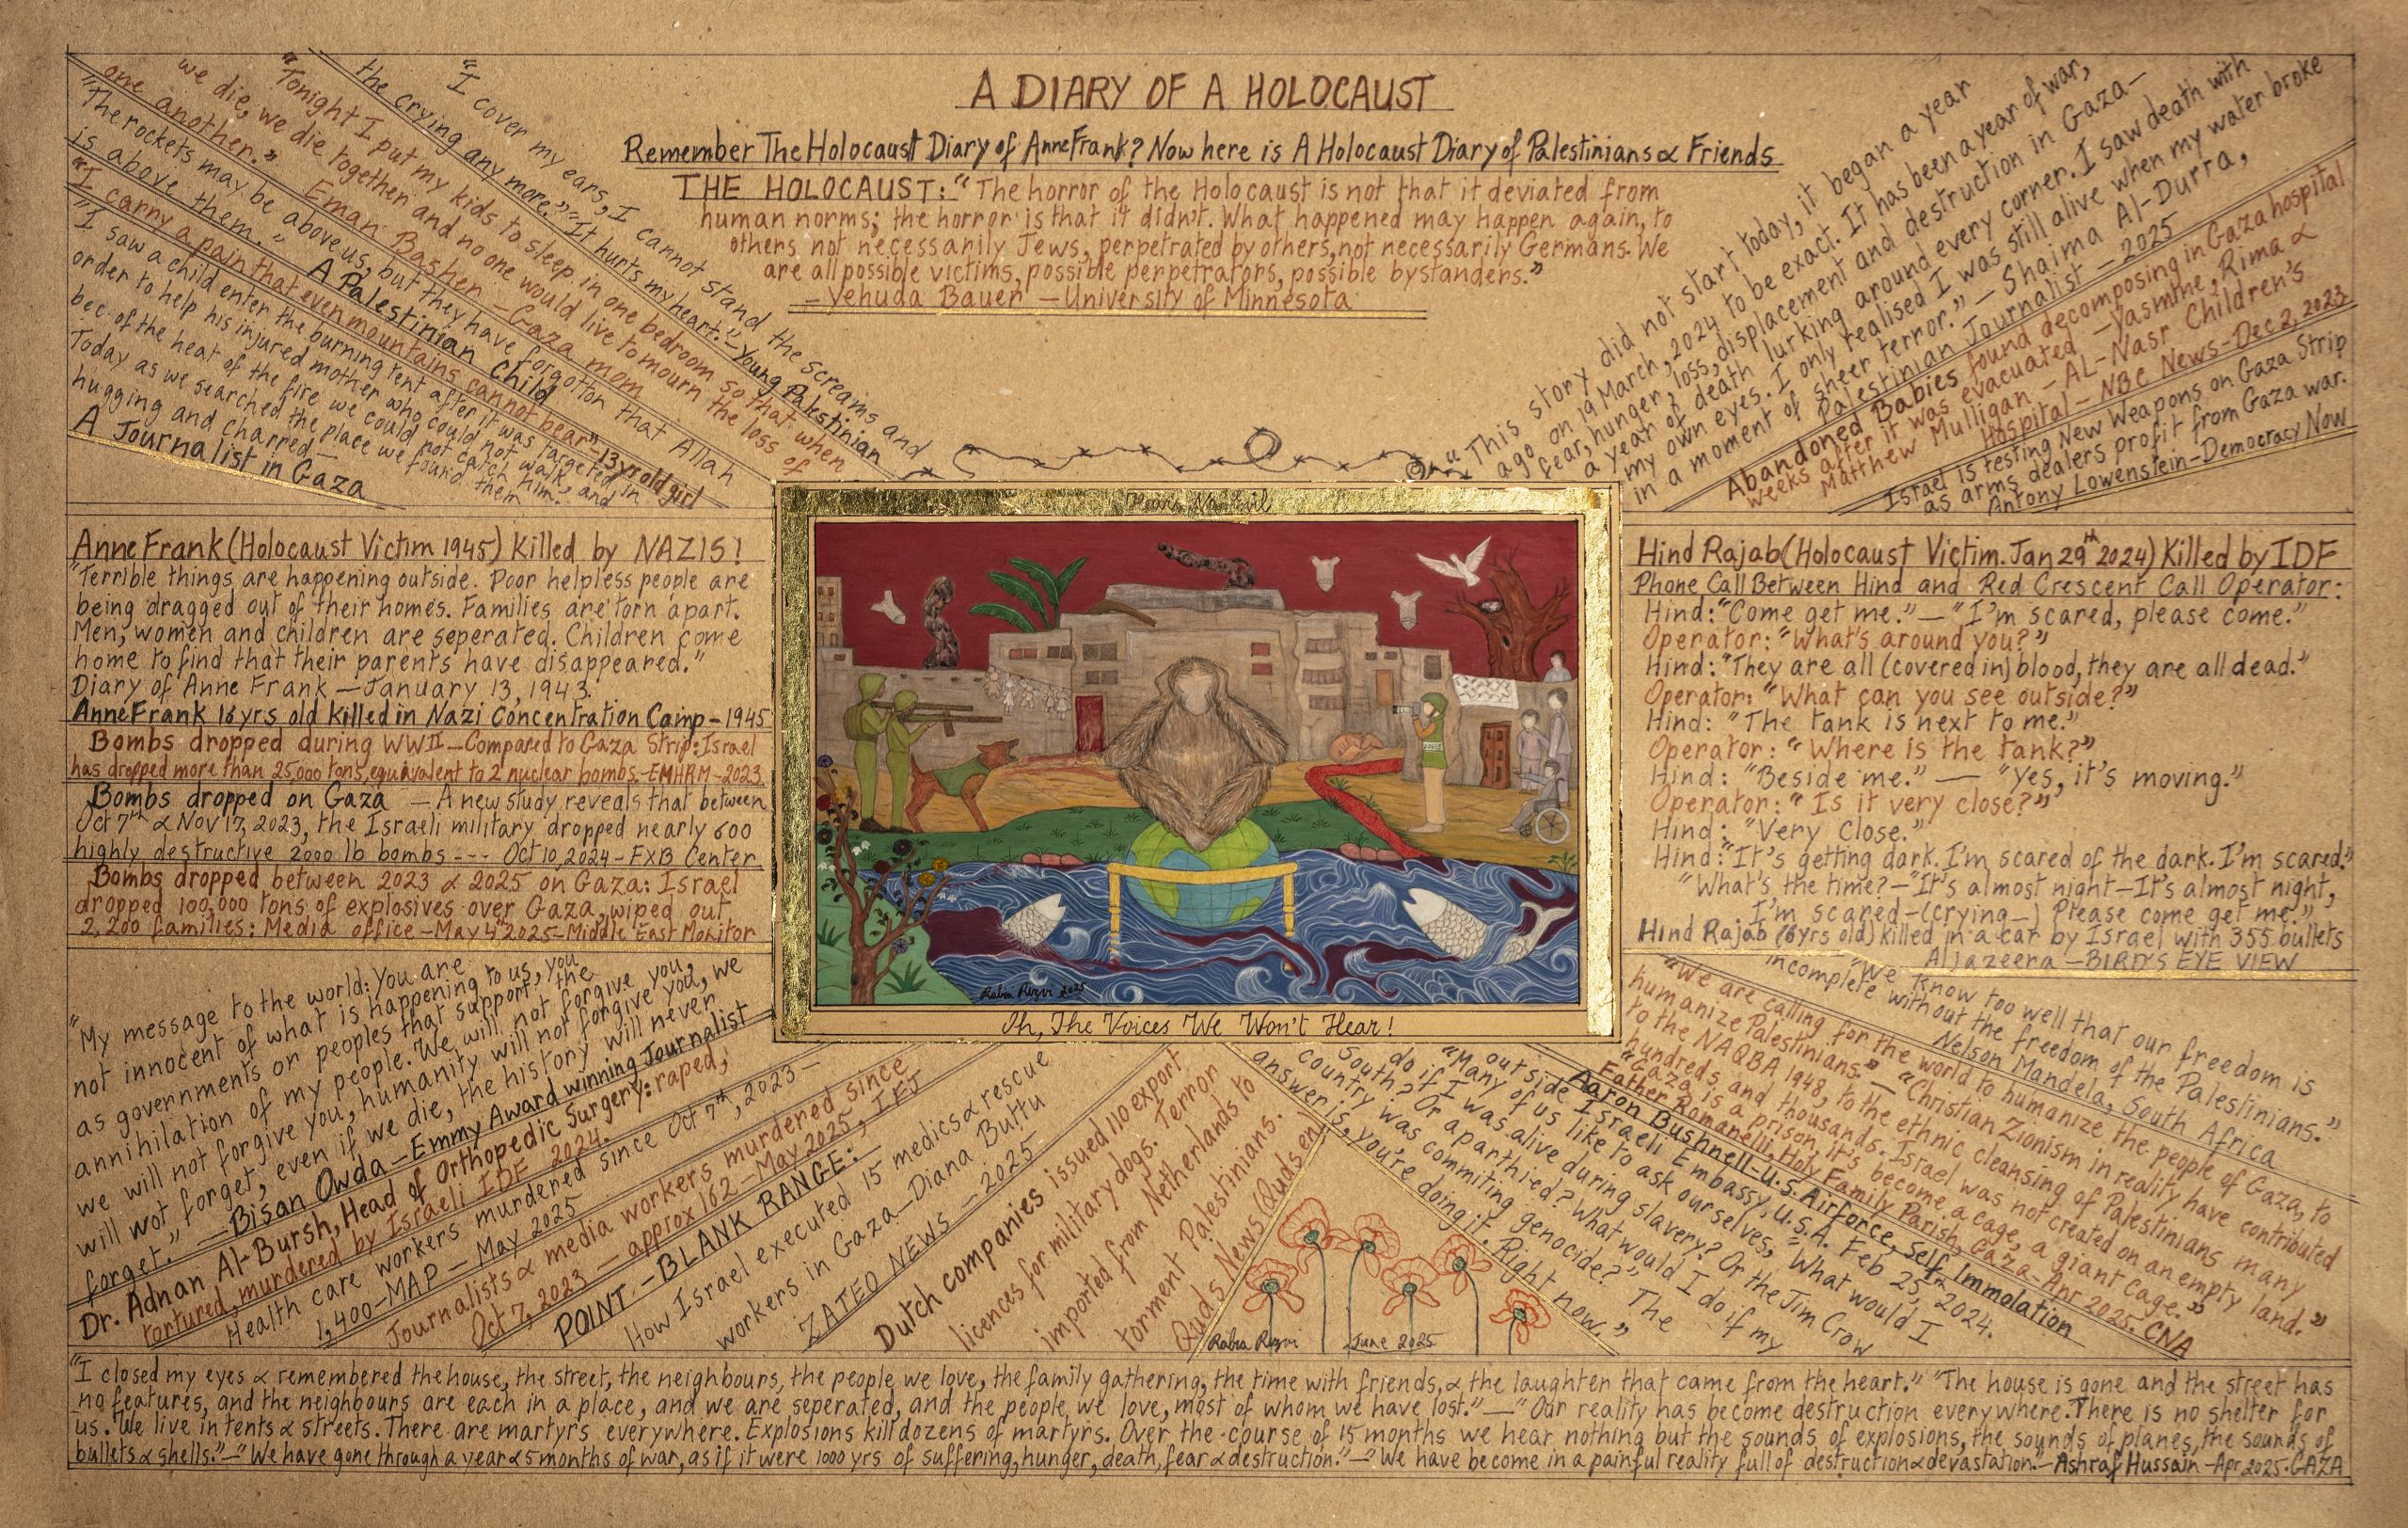 A DIARY OF A HOLOCAUST
Remember The Holocaust Diary of Anne Frank? Now here is A Holocaust Diary of Palestinians & Friends
THE HOLOCAUST: "The horror of the Holocaust is not that it deviated from
human norms; the horror is that it didn't. What happened may happen again, to
others not necessarily Jews, perpetrated by others, not necessarily Germans. We
are all possible victims, possible perpetrators, possible bystanders."
-Yehuda Bauer -University of Minnesota
"I cover my ears, I cannot stand the screams and
the crying any more." "It hurts my heart." -Young Palestinian
"Tonight I put my kids to sleep in one bedroom so that when
we die, we die together and no one would live to mourn the loss of
one another." Eman Basher - Gaza mom
"The rockets may be above us, but they have forgotton that Allah
is above them." A Palestinian Child
"I carry a pain that even mountains cannot bear"-13 yr old girl
"I saw a child enter the burning tent after it was targeted in
order to help his injured mother who could not walk, and
bec. of the heat of the fire we could not catch him.
Today as we searched the place we found them
hugging and charred-
A Journalist in Gaza
"This story did not start today, it began a year
ago on 19 March, 2024 to be exact. It has been a year of war,
fear, hunger, loss, displacement and destruction in Gaza-
a year of death lurking around every corner. I saw death with
my own eyes. I only realised I was still alive when my water broke
in a moment of sheer terror." - Shaima Al-Durra,
Palestinian Journalist -2025
Abandoned Babies found decomposing in Gaza hospital
weeks after it was evacuated -Yasmine, Rima &
Matthew Mulligan - AL-Nasr Children's
Hospital - NBC News-Dec 2, 2023
Israel is testing New Weapons on Gaza Strip
as arms dealers profit from Gaza war.
Antony Lowenstein-Democracy Now
Anne Frank (Holocaust Victim 1945) Killed by NAZIS!
"Terrible things are happening outside. Poor helpless people are
being dragged out of their homes. Families are torn apart.
Men, women and children are seperated. Children come
home to find that their parents have disappeared."
Diary of Anne Frank -January 13, 1943.
Anne Frank 16 yrs old killed in Nazi Concentration Camp-1945
Bombs dropped during WWII -Compared to Gaza Strip: Israel
has dropped more than 25,000 tons, equivalent to 2 nuclear bombs.-EMHRM-2023
Bombs dropped on Gaza - A new study reveals that between
Oct 7th & Nov 17, 2023, the Israeli military dropped nearly 600
highly destructive 2000 lb bombs --- Oct 10, 2024-FXB Center
Bombs dropped between 2023 & 2025 on Gaza: Israel
dropped 100,000 tons of explosives over Gaza, wiped out
2,200 families: Media office-May 4 2025-Middle East Monitor
Hear No Evil
PRESS
Rabia Rizvi 2025
Oh, The Voices We Won't Hear!
Hind Rajab (Holocaust Victim. Jan 29th 2024) Killed by IDF
Phone Call Between Hind and Red Crescent Call Operator:
Hind: "Come get me." - "I'm scared, please come."
Operator: "What's around you?"
Hind: "They are all (covered in) blood, they are all dead."
Operator: "What can you see outside?"
Hind: "The tank is next to me."
Operator: "Where is the tank?"
Hind: "Beside me." — "Yes, it's moving."
Operator: "Is it very close?"
Hind: "Very Close."
Hind: "It's getting dark. I'm scared of the dark. I'm scared."
"What's the time?-"It's almost night-It's almost night,
I'm scared-(crying-) Please come get me."
Hind Rajab (6yrs old) killed in a car by Israel with 355 bullets
Aljazeera -BIRD'S EYE VIEW
"My message to the world: You are
not innocent of what is happening to us, you
as governments or peoples that support the
annihilation of my people. We will not forgive you,
we will not forgive you, humanity will not forgive you, we
will wot forget, even if we die, the history will never
forget." -Bisan Owda-Emmy Award winning Journalist
Dr. Adnan Al-Bursh, Head of Orthopedic Surgery: raped,
tortured, murdered by Israeli IDF 2024.
Health care workers murdered since Oct 7th, 2023-
1,400-MAP - May 2025
Journalists & media workers murdered since
Oct 7, 2023 - approx 162-May 2025, IFJ
POINT-BLANK RANGE:
How Israel executed 15 medics & rescue
workers in Gaza-Diana Buttu
ZATEO NEWS - 2025
Dutch companies issued 110 export
licences for military dogs. Terror
imported from Netherlands to
torment Palestinians.
Quds News (Qudsen)
"We know too well that our freedom is
incomplete without the freedom of the Palestinians."
Nelson Mandela, South Africa
"We are calling for the world to humanize the people of Gaza, to
humanize Palestinians." - "Christian Zionism in reality have contributed
to the NAQBA 1948, to the ethnic cleansing of Palestinians many
hundreds and thousands. Israel was not created on an empty land."
"Gaza is a prison, it's become a cage, a giant cage."
Father Romanelli, Holy Family Parish, Gaza-Apr 2025. CNA
Aaron Bushnell-U.S. Airforce, Self Immolation
outside Israeli Embassy, U.S.A. Feb 25th, 2024.
"Many of us like to ask ourselves, "What would I
do if I was alive during slavery? Or the Jim Crow
South? Or aparthied? What would I do if my
country was commiting genocide?" The
answer is, you're doing it. Right now."
Rabia Rizvi June 2025
"I closed my eyes & remembered the house, the street, the neighbours, the people we love, the family gathering, the time with friends, & the laughter that came from the heart." "The house is gone and the street has
no features, and the neighbours are each in a place, and we are seperated, and the people we love, most of whom we have lost."-"Our reality has become destruction everywhere. There is no shelter for
us. We live in tents & streets. There are martyr's everywhere. Explosions kill dozens of martyrs. Over the course of 15 months we hear nothing but the sounds of explosions, the sounds of planes, the sounds of
bullets & shells."-"We have gone through a year & 5 months of war, as if it were 1000 yrs of suffering, hunger, death, fear & destruction."-"We have become in a painful reality full of destruction & devastation."-Ashraf Hussain-Apr 2025. GAZA